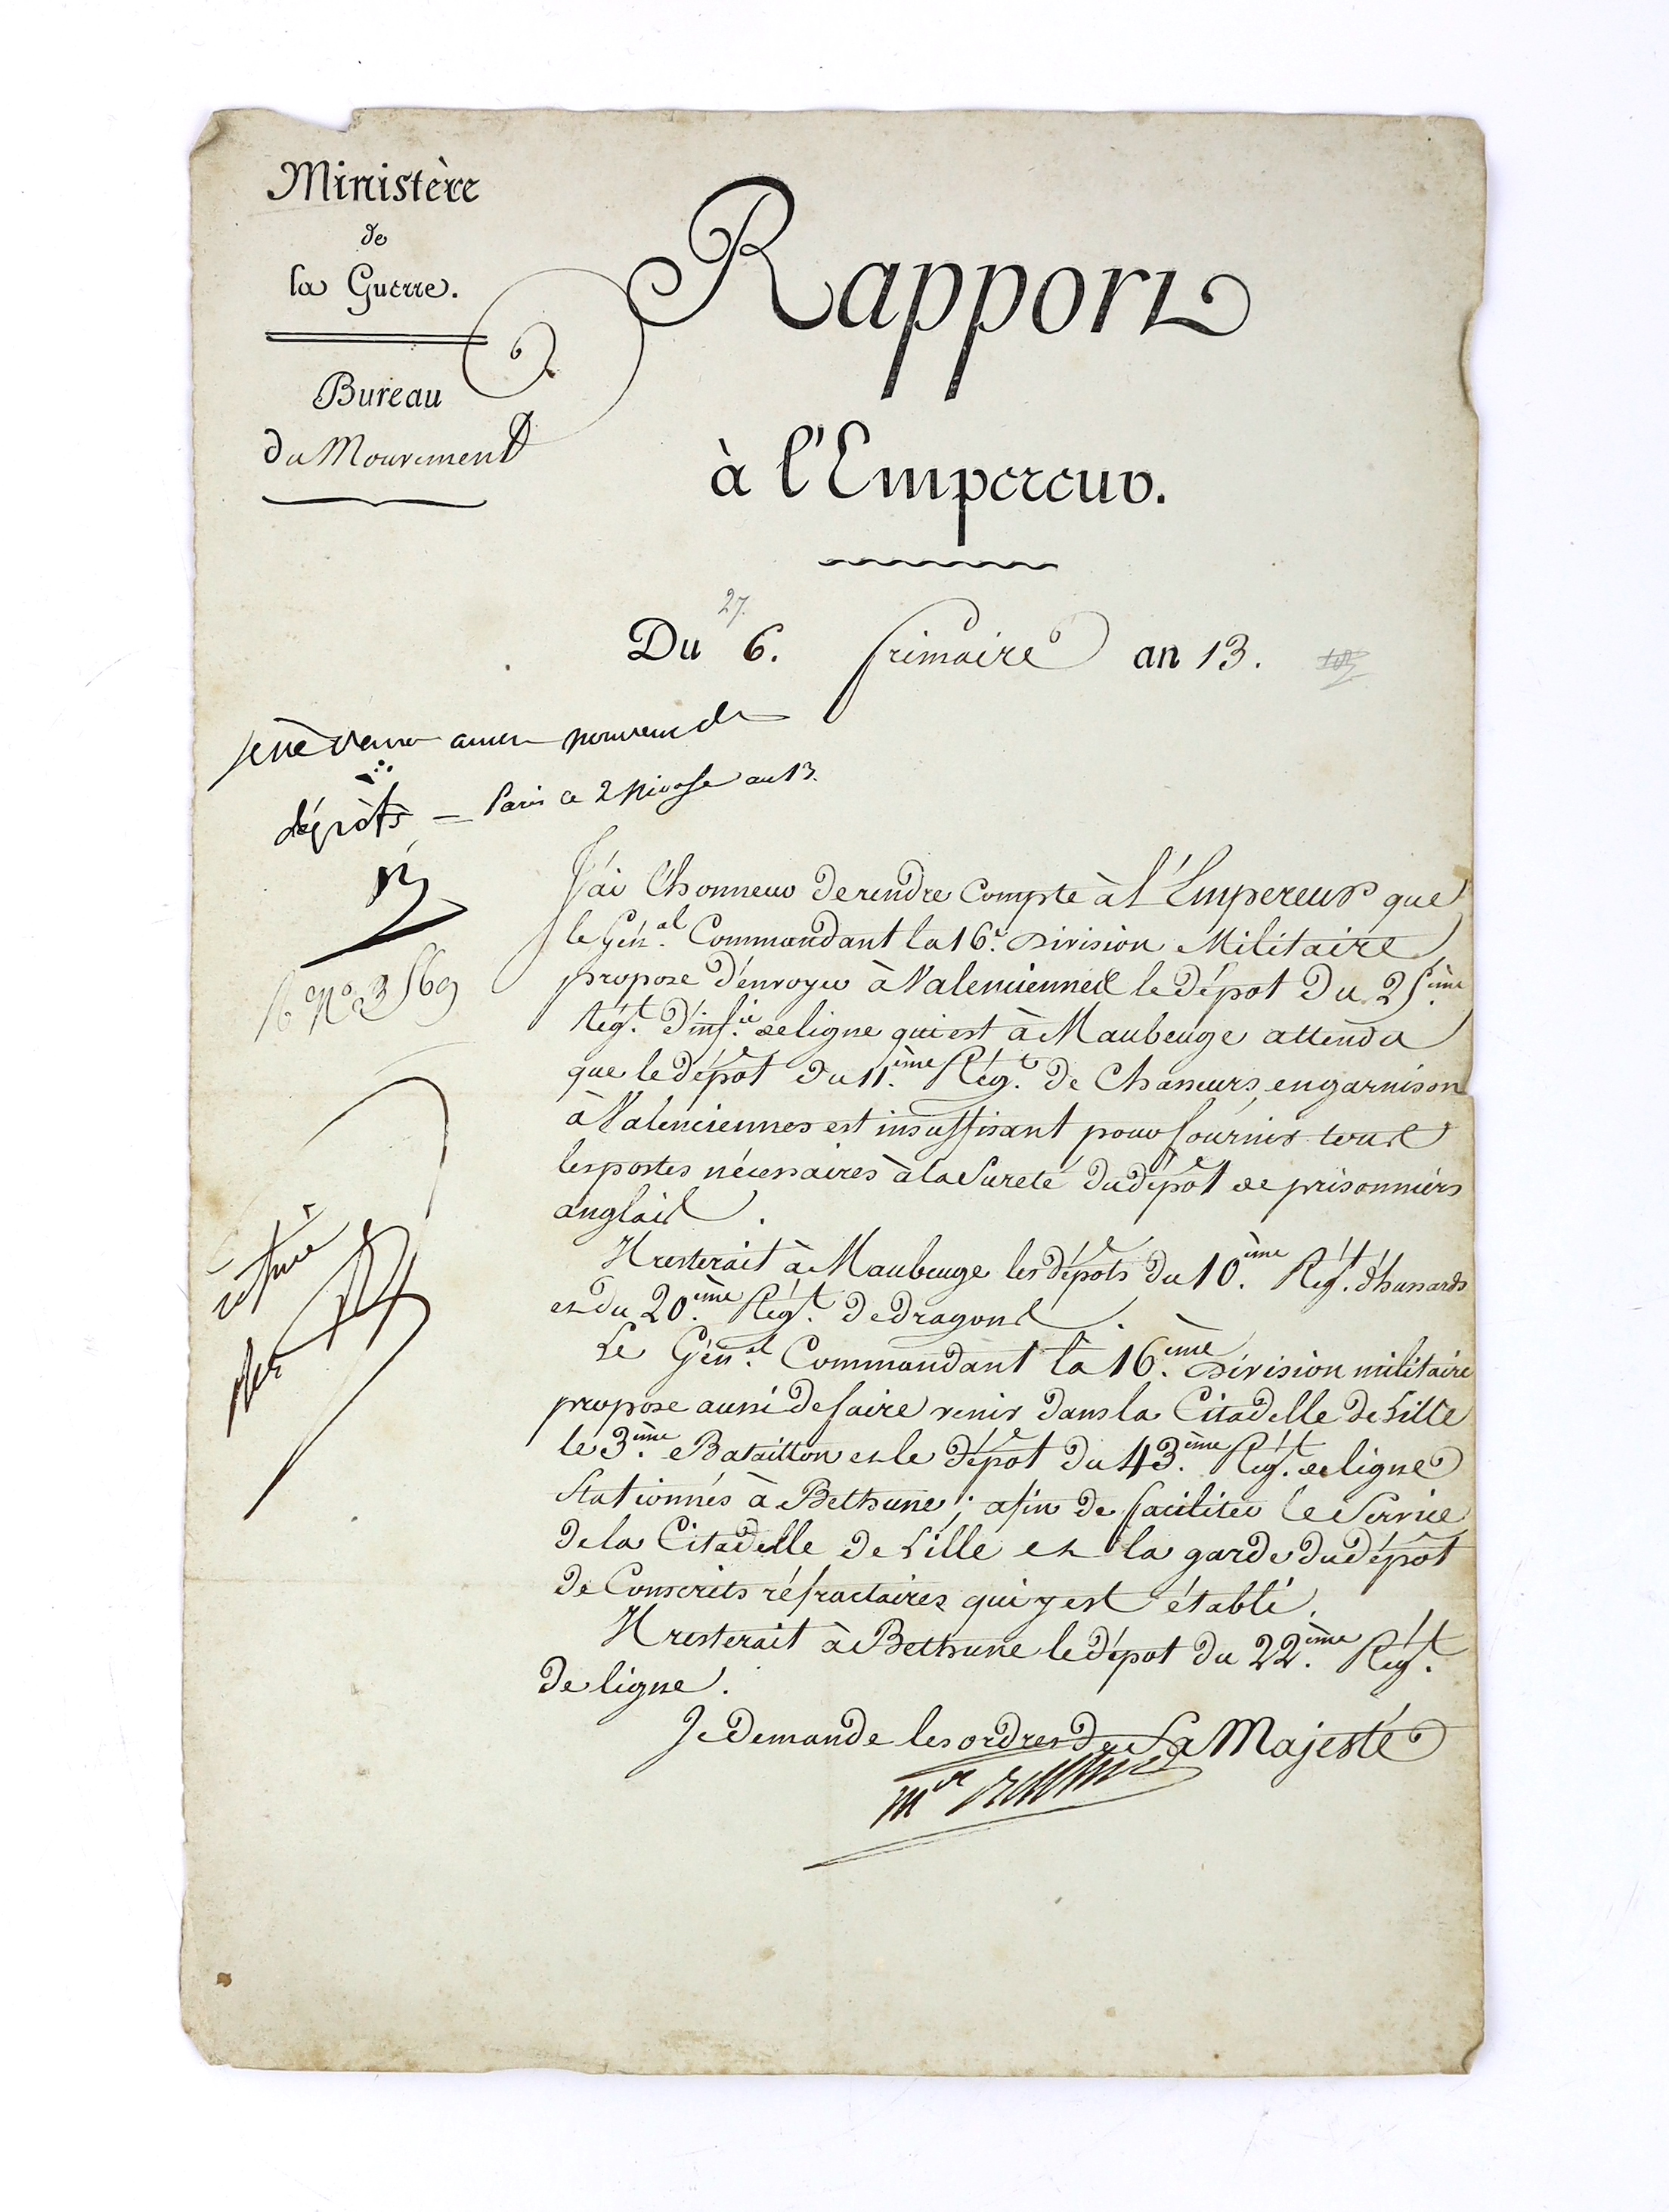 Ministère
de
la Guerre.
Bureau
du Mouvement
Rapport
à l'Empereur.
27.
Du 6. frimaire an 13.
mouvement de
dépôts — Paris ce 2 Nivose an 13.
N
No 3569
J'ai l'honneur de rendre Compte à l'Empereur que
le Gén.al Commandant la 16.e Division Militaire
propose d'envoyer à Valenciennes le dépôt du 25.ème
Rég.t d'inf.ie de ligne qui est à Maubeuge attendu
que le dépôt du 11.ème Rég.t de Chasseurs, en garnison
à Valenciennes est insuffisant pour fournir tous
les postes nécessaires à la Sureté du dépôt de prisonniers
anglais.
Il resterait à Maubeuge les dépôts du 10.ème Rég.t d'hussards
et du 20.ème Rég.t de dragons.
Le Gén.al Commandant la 16.ème Division militaire
propose aussi de faire venir dans la Citadelle de Lille
le 3.ème Bataillon et le dépôt du 43.ème Rég.t de ligne
Stationnés à Bethune; afin de faciliter le Service
de la Citadelle de Lille et la garde du dépôt
de Conscrits réfractaires qui y est établi.
Il resterait à Bethune le dépôt du 22.ème Rég.t
de ligne.
Je demande les ordres de Sa Majesté